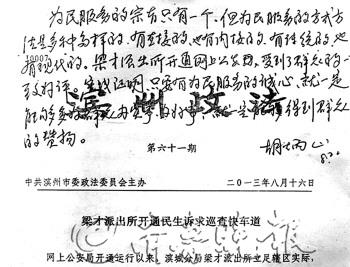 为民服务的宗旨只有一个,但为民服务的方式方
法是多种多样的。有直接的也有间接的,有传统的也
有现代的。梁才派出所开通网上公安局,受到了群众的一
致好评。实践证明,只要有为民服务的诚心,就一定
能
的赞扬。
得到群众
滨州政法
第六十一期
中共滨州市委政法委员会主办
二〇一三年八月十六日
梁才派出所开通民生诉求巡查快车道
网上公安局开通运行以来,滨城分局梁才派出所立足辖区实际,